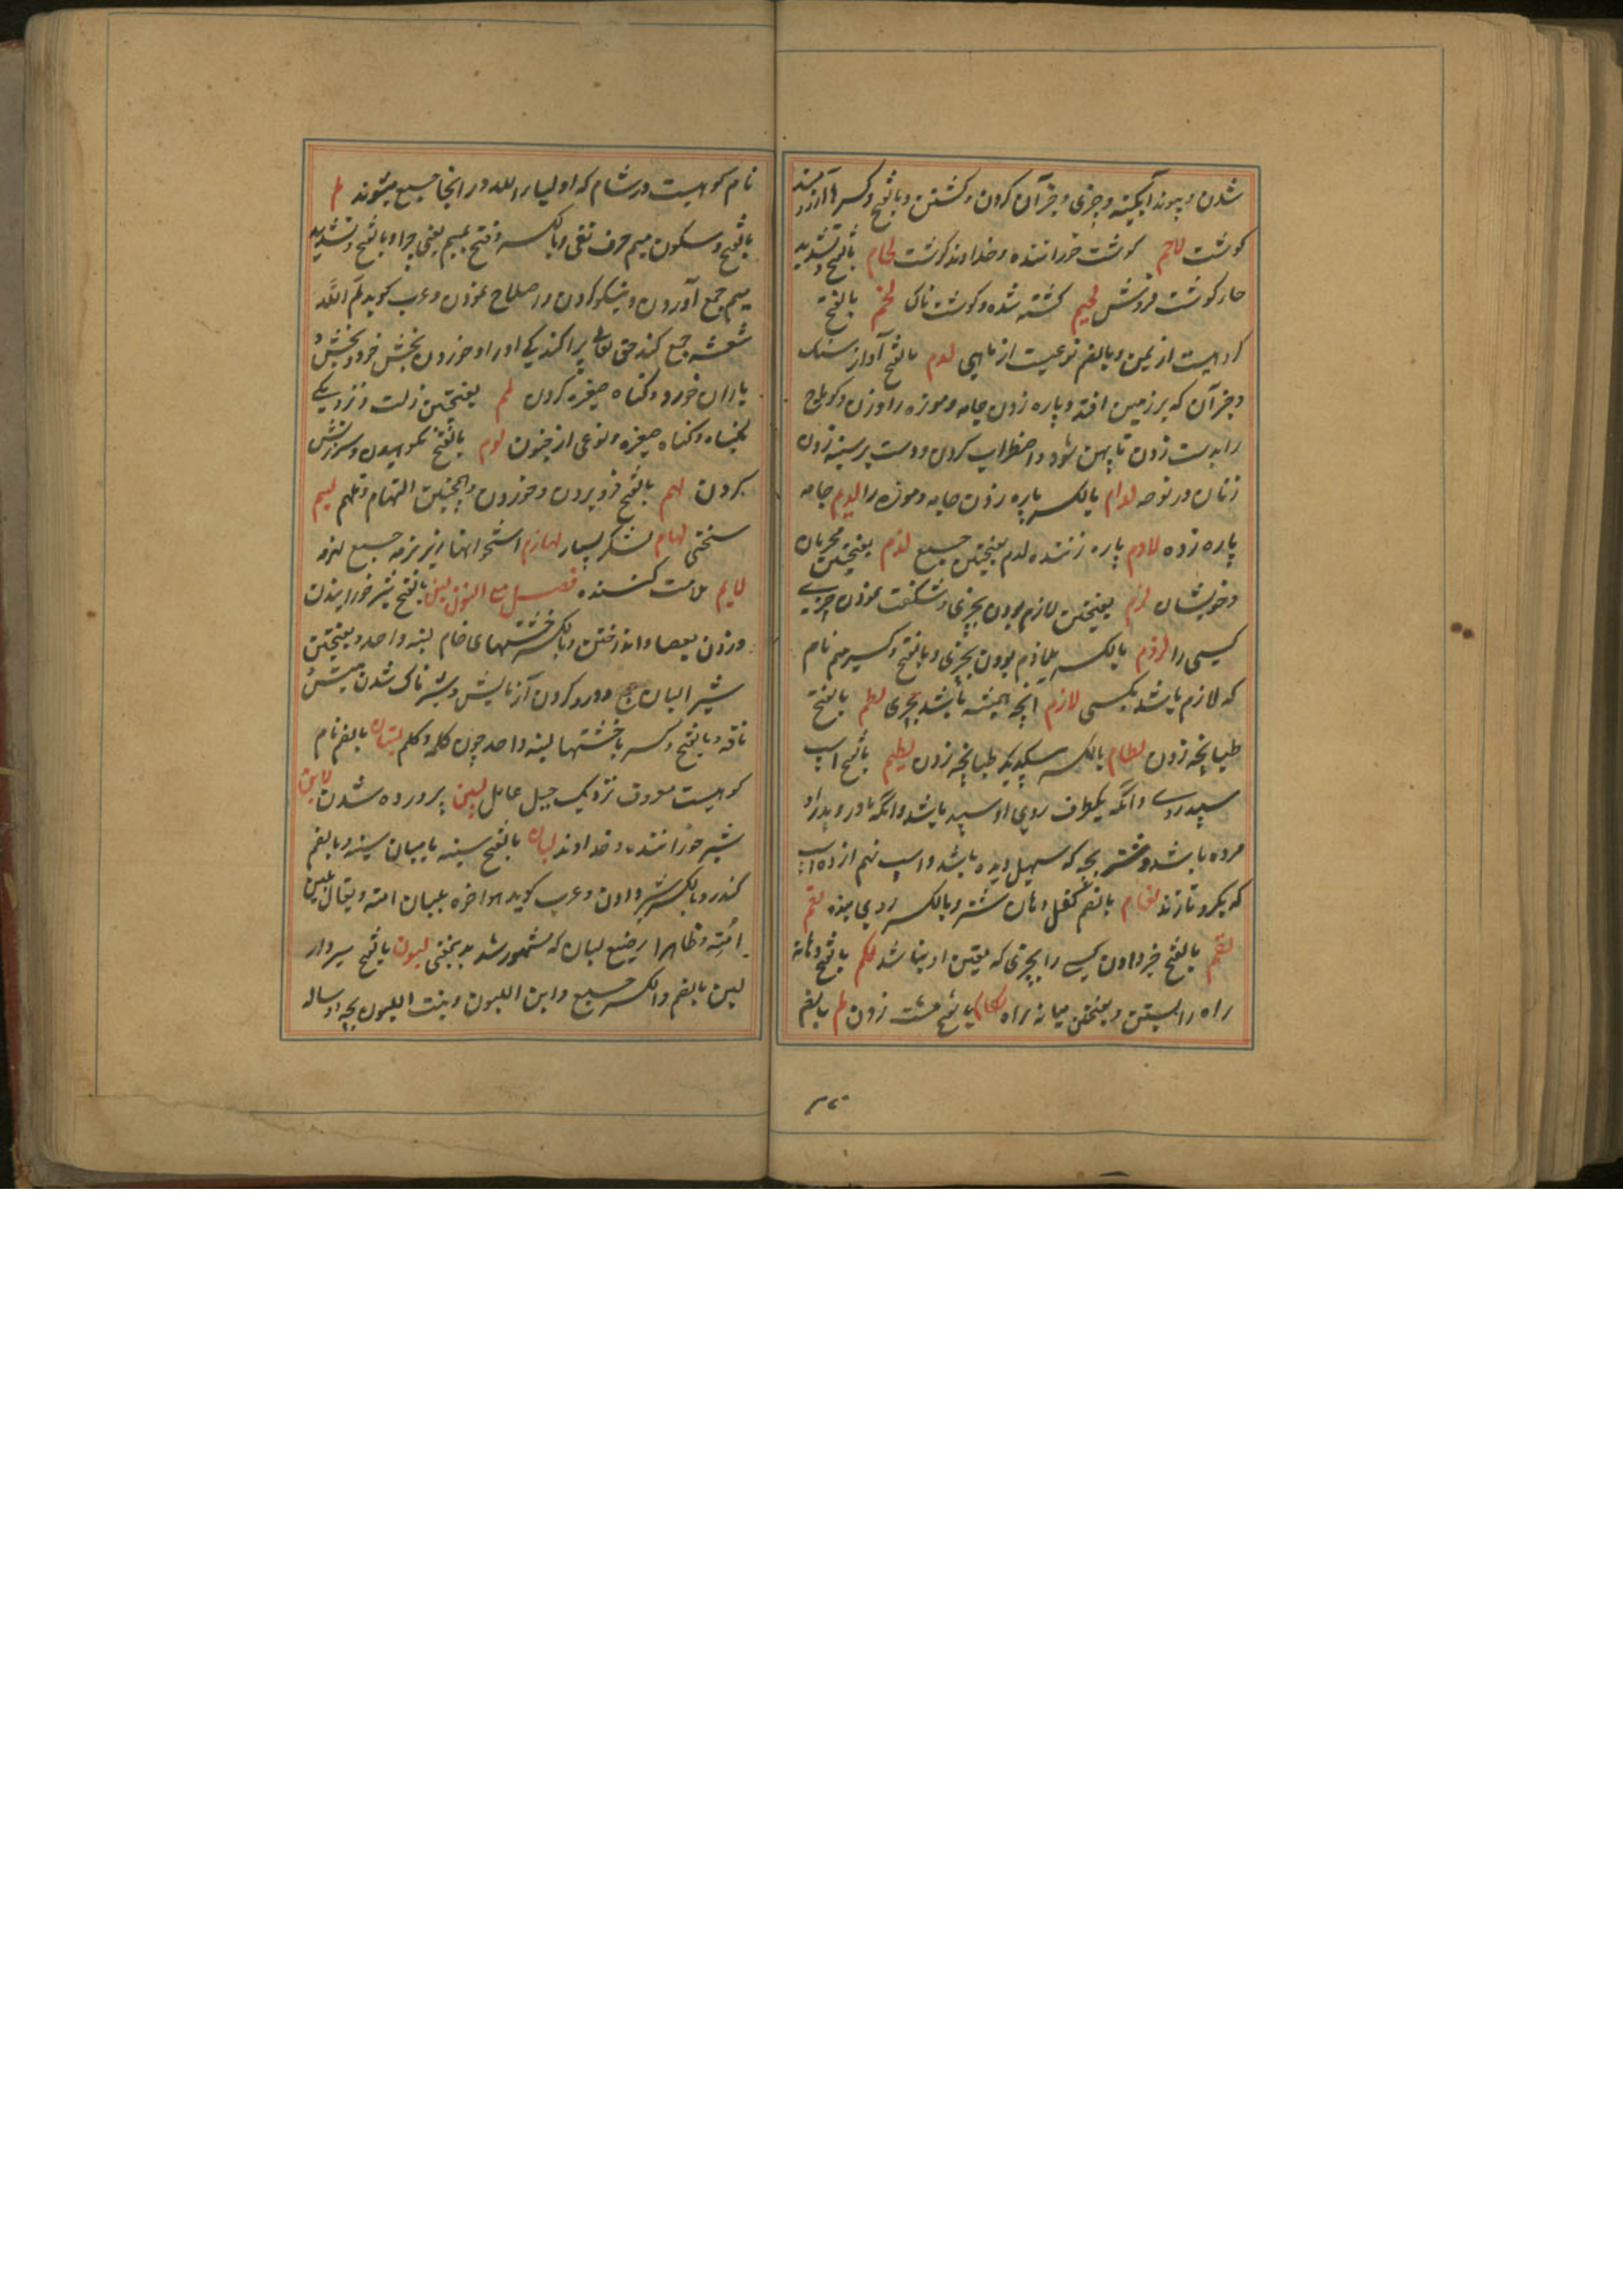 شدن و پیوند آبکینه و چیزی و جز آن کردن و کشتن و بالفتح و کسر ها آرزومند
کوشت لاحم کوشت خوراننده و خداوند کوشت لحام بالفتح و تشدید
حا کوشت فروش لحیم کشته شده و کوشت ناک لخم بالفتح
کروهیست از یمن و بالضم نوعیست از ماهی لدم بالفتح آواز سنک
و جز آن که بر زمین افتد و پاره زدن جامه و موزه را و زدن و کوماج
را بدست زدن تا پهن شود و اضطراب کردن و دست بر سینه زدن
زنان در نوحه لدام بالکسر پاره زدن جامه و موزه را لدیم جامه
پاره زده لادم پاره زننده لدم بفتحتین جمیع لذم بفتحتین محرمان
و خویشان لزم بفتحتین لازم بودن بچیزی و شکفت نمودن چیزی
کسی را لزام بالکسر ملازم بودن بچیزی و بالفتح و کسر میم نام
که لازم باشد بکسی لازم انچه همیشه باشد بچیزی لطم بالفتح
طپانچه زدن لطام بالکسر یکدیکر طپانچه زدن لطیم بالفتح اسب
سپید روی و انکه یکطرف روی او سپید باشد و انکه مادر و پدر او
مرده باشد و شتر بچه که سهیل دیده باشد و اسب نهم از ده اسب
که بکرو تازند لغام بالضم کفل دهان شتر و بالکسر روی بند لقم
لغم بالفتح خبر دادن کسی را بچیزی که یقین او نباشد لقم بالفتح دهانه
راه را بستن و بفتحتین میانه راه لکام بالفتح مشت زدن لم بالضم
نام کوهیست در شام که اولیاء الله در انجا جمیع میشوند لم
بالفتح و سکون میم حرف نفی و بالکسر و فتح میم یعنی چرا و بالفتح و تشدید
میم جمع آوردن و نیکو کردن و اصلاح نمودن و عرب کوید لم الله
شعثه جمع کند حق تعالی پراکندکی او را و خوردن بخش خود و بخش
یاران خود و کناه صغیره کردن لمم بفتحتین زلت و نزدیکی
بکناه و کناه صغیره و نوعی از جنون لوم بالفتح نکوهیدن و سرزنش
کردن لهم بالفتح فرو بردن و خوردن و همچنین التهام و تلهم لهیم
سختی لهام لشکر بسیار لهازم استخوانها زیر نرمه جمیع لهزمه
لایم ملامت کننده فصل مع النون لبن بالفتح شیر خورانیدن
و زدن بعصا و انداختن و بالکسر خشتهای خام لبنه واحد و بفتحتین
شیر البان ج و درو کردن آزمایش و شیر ناک شدن میش
ناقه و بالفتح و کسر با خشتها لبنه واحد چون کلمه و کلم لبنان بالضم نام
کوهیست معروف نزدیک جبل عامل لبین پرورده شدن لابن
شیر خوراننده و خداوند لبان بالفتح سینه یا میان سینه و بالضم
کندر و بالکسر شیر دادن و عرب کوید هو اخوه بلبان امه و یقال بلبن
امه و ظاهرا رضیع لبان که مشهور شد بدینمعنی لبون بالفتح شیردار
لبن بالضم و الکسر جمیع و ابن اللبون و بنت اللبون بچه دو ساله